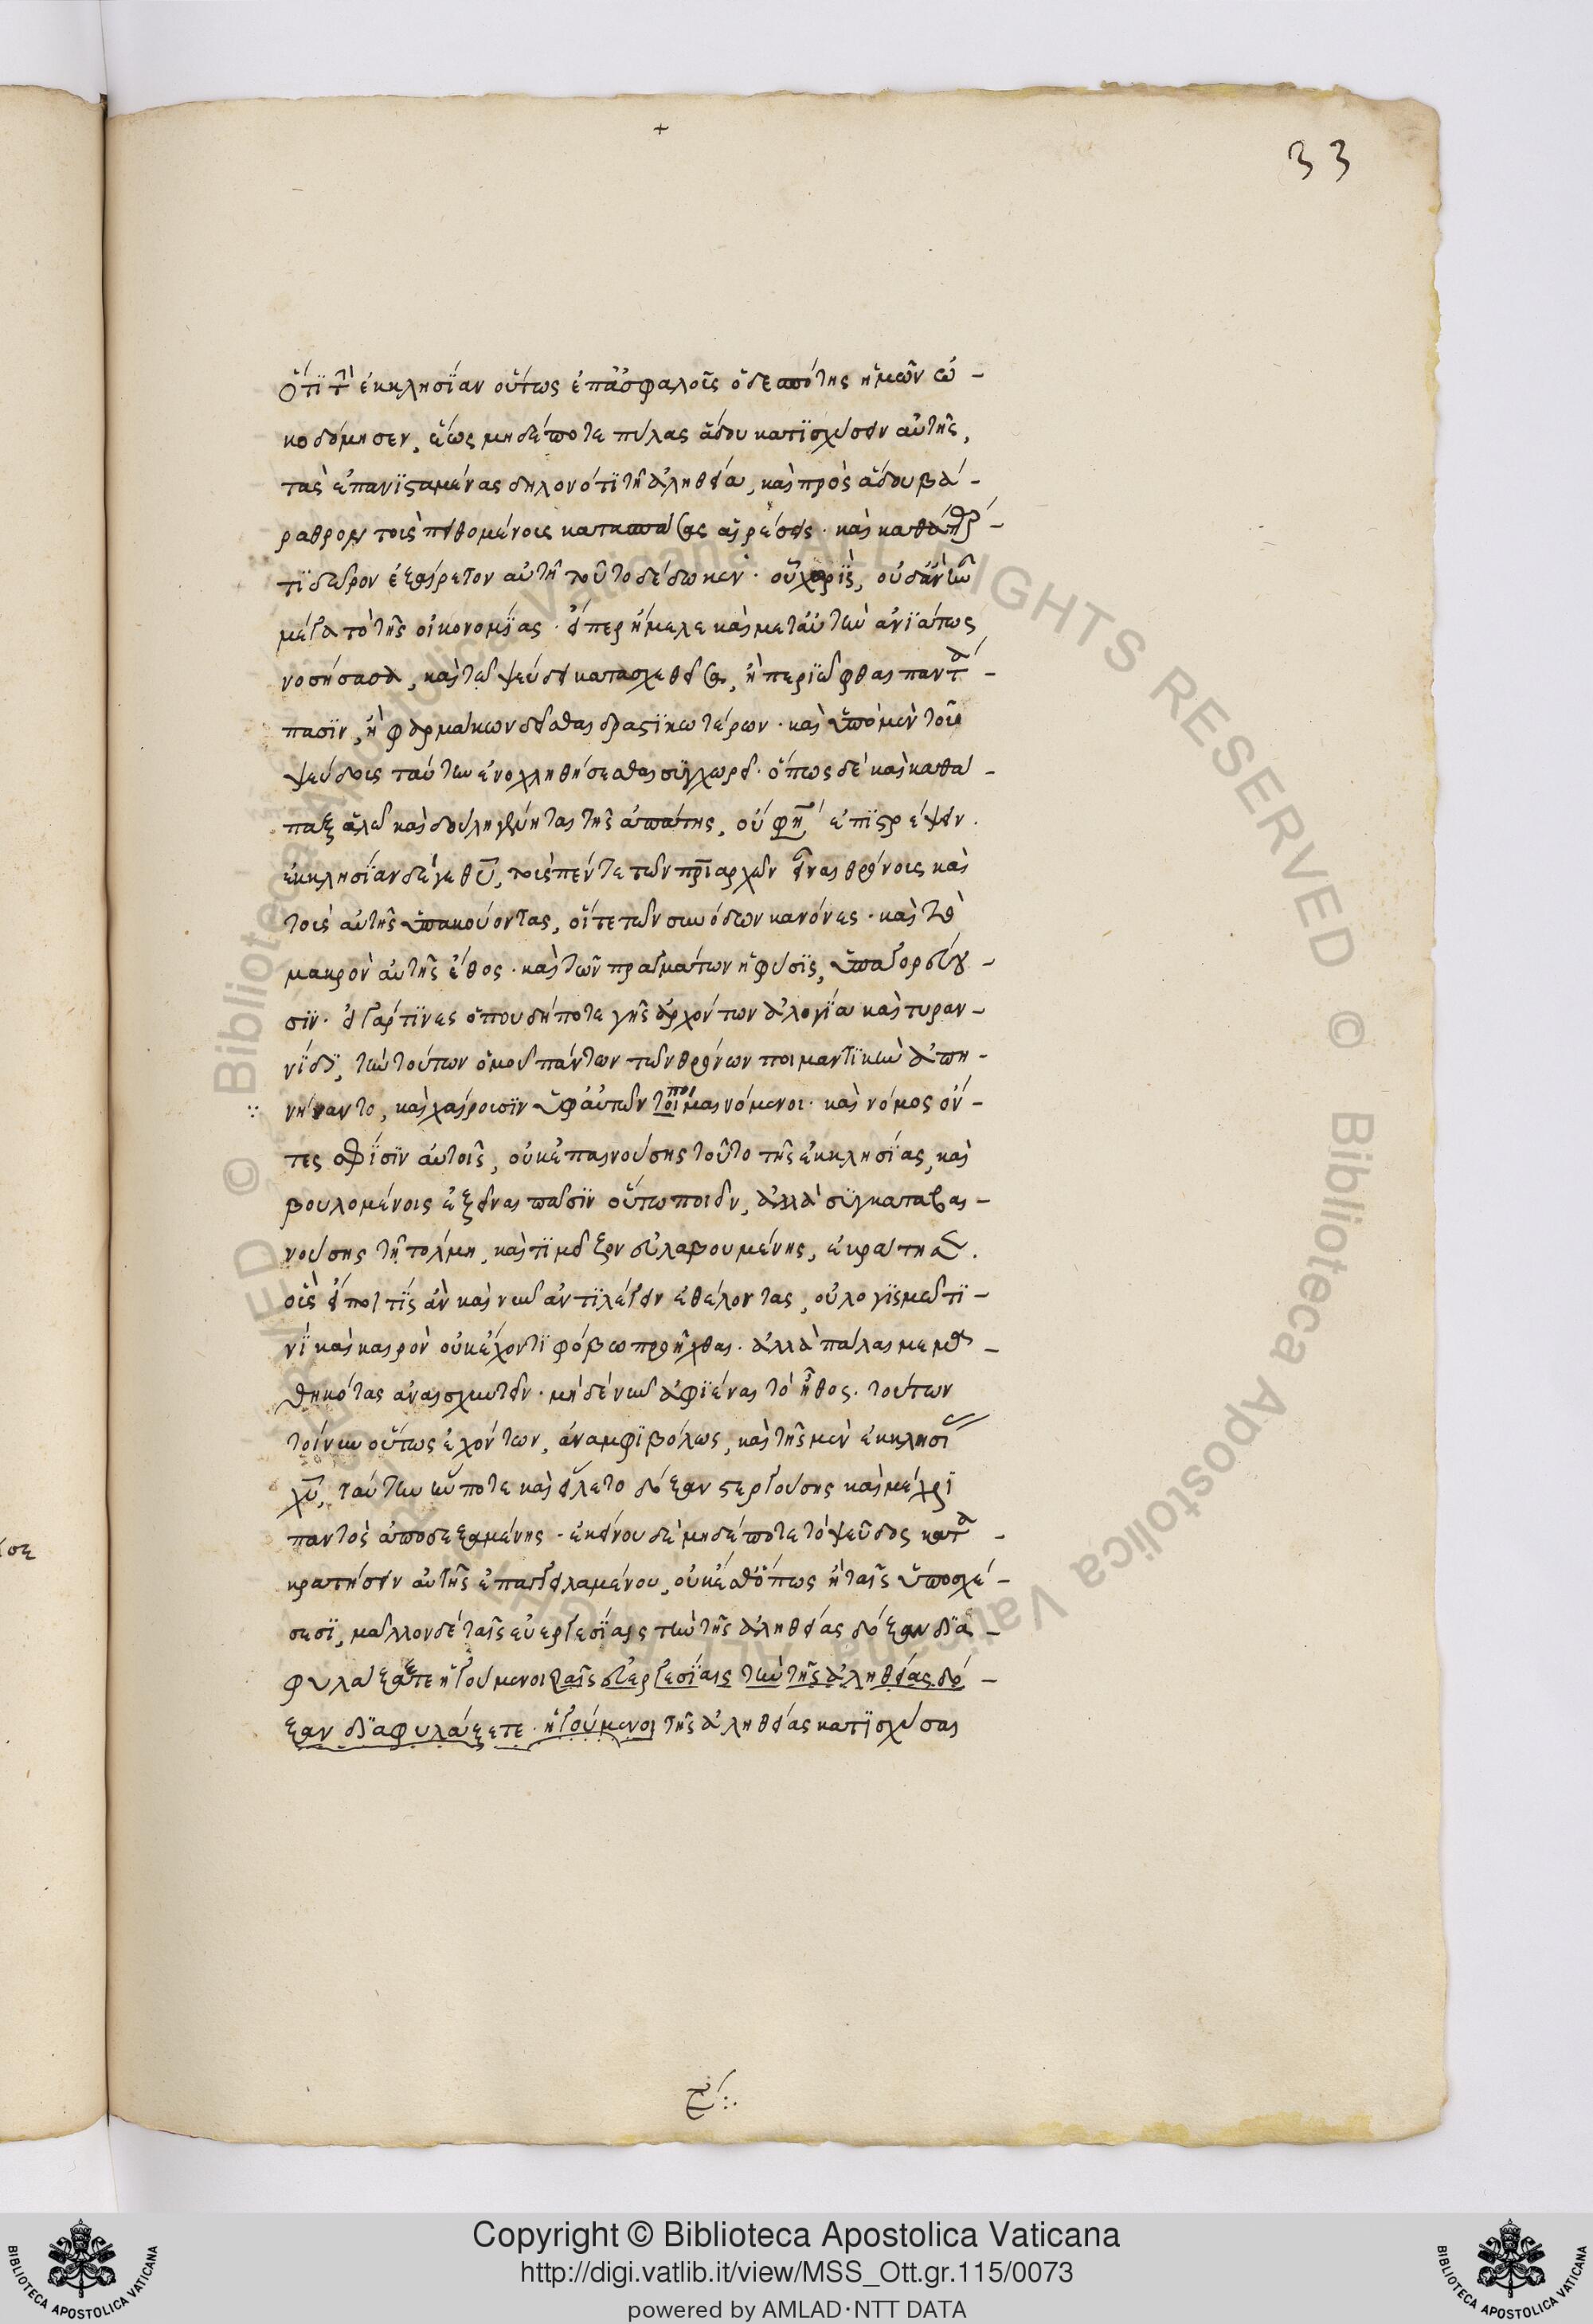 +
33
Ὅτι τὴν ἐκκλησίαν οὕτως ἐπ' ἀσφαλοῦς ὁ δεσπότης ἡμῶν ᾠ-
κοδόμησεν, ἕως μηδέποτε πύλας ᾅδου κατισχύσειν αὐτῆς,
τὰς ἐπανισταμένας δηλονότι τῇ ἀληθεία, καὶ πρὸς ᾅδου βά-
ραθρον τοὺς πειθομένους κατασπώσας αἱρέσεις. καὶ καθάπερ
τι δῶρον ἐξαίρετον αὐτῇ τοῦτο δέδωκεν.
μέγα τὸ τῆς οἰκονομίας. εἴπερ ἤμελε καὶ μετ' αὐτὴν ἀνιάτως
νοσήσασα, καὶ τῷ ψεύδει κατασχεθεῖσα, ἢ περιῶφθαι παντά-
πασιν, ἢ φαρμάκων δεῖσθαι δραστικωτέρων. καὶ ὑπὸ μὲν τοῦ
ψεύδους ταύτην ἐνοχληθήσεσθαι συγχωρεῖ. ὅπως δὲ καὶ καθά-
παξ ἁλῶ καὶ δουληγωγῆται τῆς ἀπάτης, οὔ φησι ἐπιτρέψειν.
ἐκκλησίαν δέ γε θῦ, τοὺς πέντε τῶν πριαρχῶν εἶναι θρόνους καὶ
τοὺς αὐτῆς ὑπακούοντας, οἵ τε τῶν συνόδων κανόνες. καὶ τὸ
μακρὸν αὐτῆς ἔθος. καὶ τῶν πραγμάτων ἡ φύσις, ὑπαγορεύου-
σιν. εἰ γάρ τινες ὅπου δήποτε γῆς ἀρχόντων ἀλογία καὶ τυραν-
νίδι, τὴν τούτων ὁμοῦ πάντων τῶν θρόνων ποιμαντικὴν ἀπη-
νήναντο, καὶ χαίρουσιν ὑφ' αὑτῶν ποιμαινόμενοι. καὶ νόμος ὄν-
τες σφίσιν αὐτοῖς, οὐκ ἐπαινούσης τοῦτο τῆς ἐκκλησίας, καὶ
βουλομένοις ἐξεῖναι πᾶσιν οὕτω ποιεῖν, ἀλλὰ συγκαταβαι-
νούσης τῇ τόλμῃ, καὶ τι μεῖζον εὐλαβουμένης, ἐκράτησαν.
οἷς εἴποι τίς ἂν καὶ νῦν ἀντιλέγειν ἐθέλοντας, οὐ λογισμῷ τι-
νι καὶ καιρὸν οὐκ ἔχοντι φόβω προῆχθαι. ἀλλὰ πάλαι μεμα-
θηκότας ἀναισχυντεῖν. μηδὲ νῦν ἀφιέναι τὸ ἦθος. τούτων
τοίνυν οὕτως ἐχόντων, ἀναμφιβόλως, καὶ τῆς μὲν ἐκκλησίας
χῦ, ταύτην εὔποτε καὶ εἵλετο δόξαν στεργούσης καὶ μέχρι
παντὸς ἀποδεξαμένης. ἐκείνου δὲ μηδέποτε τὸ ψεῦδος κατα-
κρατήσειν αὐτῆς ἐπαγγειλαμένου, οὐκ ἔσθ' ὅπως ἢ ταῖς ὑποσχέ-
σεσι, μᾶλλον δὲ ταῖς εὐεργεσίαις τὴν τῆς ἀληθείας δόξαν δια-
φυλάξετε ἡγούμενοι ταῖς εὐεργεσίαις τὴν τῆς ἀληθείας δό-
ξαν διαφυλάξετε. ἡγούμενοι τῆς ἀληθείας κατισχύσαι
Copyright © Biblioteca Apostolica Vaticana
http://digi.vatlib.it/view/MSS_Ott.gr.115/0073
powered by AMLAD·NTT DATA
BIBLIOTECA APOSTOLICA VATICANA
BIBLIOTECA APOSTOLICA VATICANA